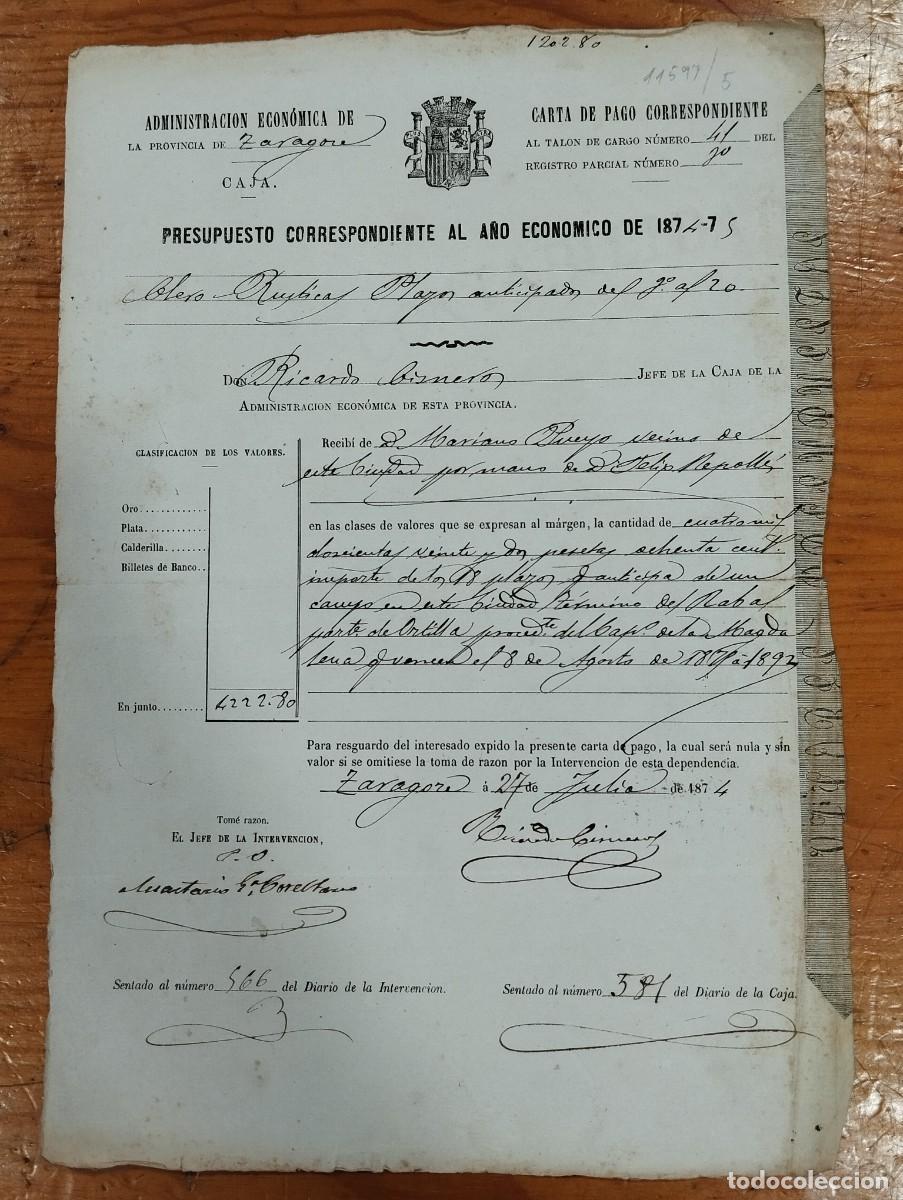 1202.80
11597/5
ADMINISTRACION ECONÓMICA DE
LA PROVINCIA DE Zaragoza
CAJA.
CARTA DE PAGO CORRESPONDIENTE
AL TALON DE CARGO NÚMERO 41 DEL
REGISTRO PARCIAL NÚMERO 30
PRESUPUESTO CORRESPONDIENTE AL AÑO ECONOMICO DE 1874-75
Clero Rusticas Plazos anticipados del 3.º al 20.
DON Ricardo Cisneros JEFE DE LA CAJA DE LA
ADMINISTRACION ECONÓMICA DE ESTA PROVINCIA.
CLASIFICACION DE LOS VALORES.
Oro
Plata
Calderilla
Billetes de Banco
En junto 4222.80
Recibí de D. Mariano Pueyo vecino de
esta Ciudad por mano de D. Felix Repollés
en las clases de valores que se expresan al márgen, la cantidad de cuatro mil
doscientas veinte y dos pesetas ochenta cent.
importe de los 18 plazos q anticipa de un
campo en esta Ciudad término del Rabal
part.ª de Ortilla proced.te del Cap.º de la Magda
lena q vencen el 8 de Agosto de a 1892
Para resguardo del interesado expido la presente carta de pago, la cual será nula y sin
valor si se omitiese la toma de razon por la Intervencion de esta dependencia.
Zaragoza á 27 de Julio de 1874
Tomé razon.
EL JEFE DE LA INTERVENCION,
P. O.
Ricardo Cisneros
Sentado al número 566 del Diario de la Intervencion.
Sentado al número 581 del Diario de la Caja.
todocoleccion